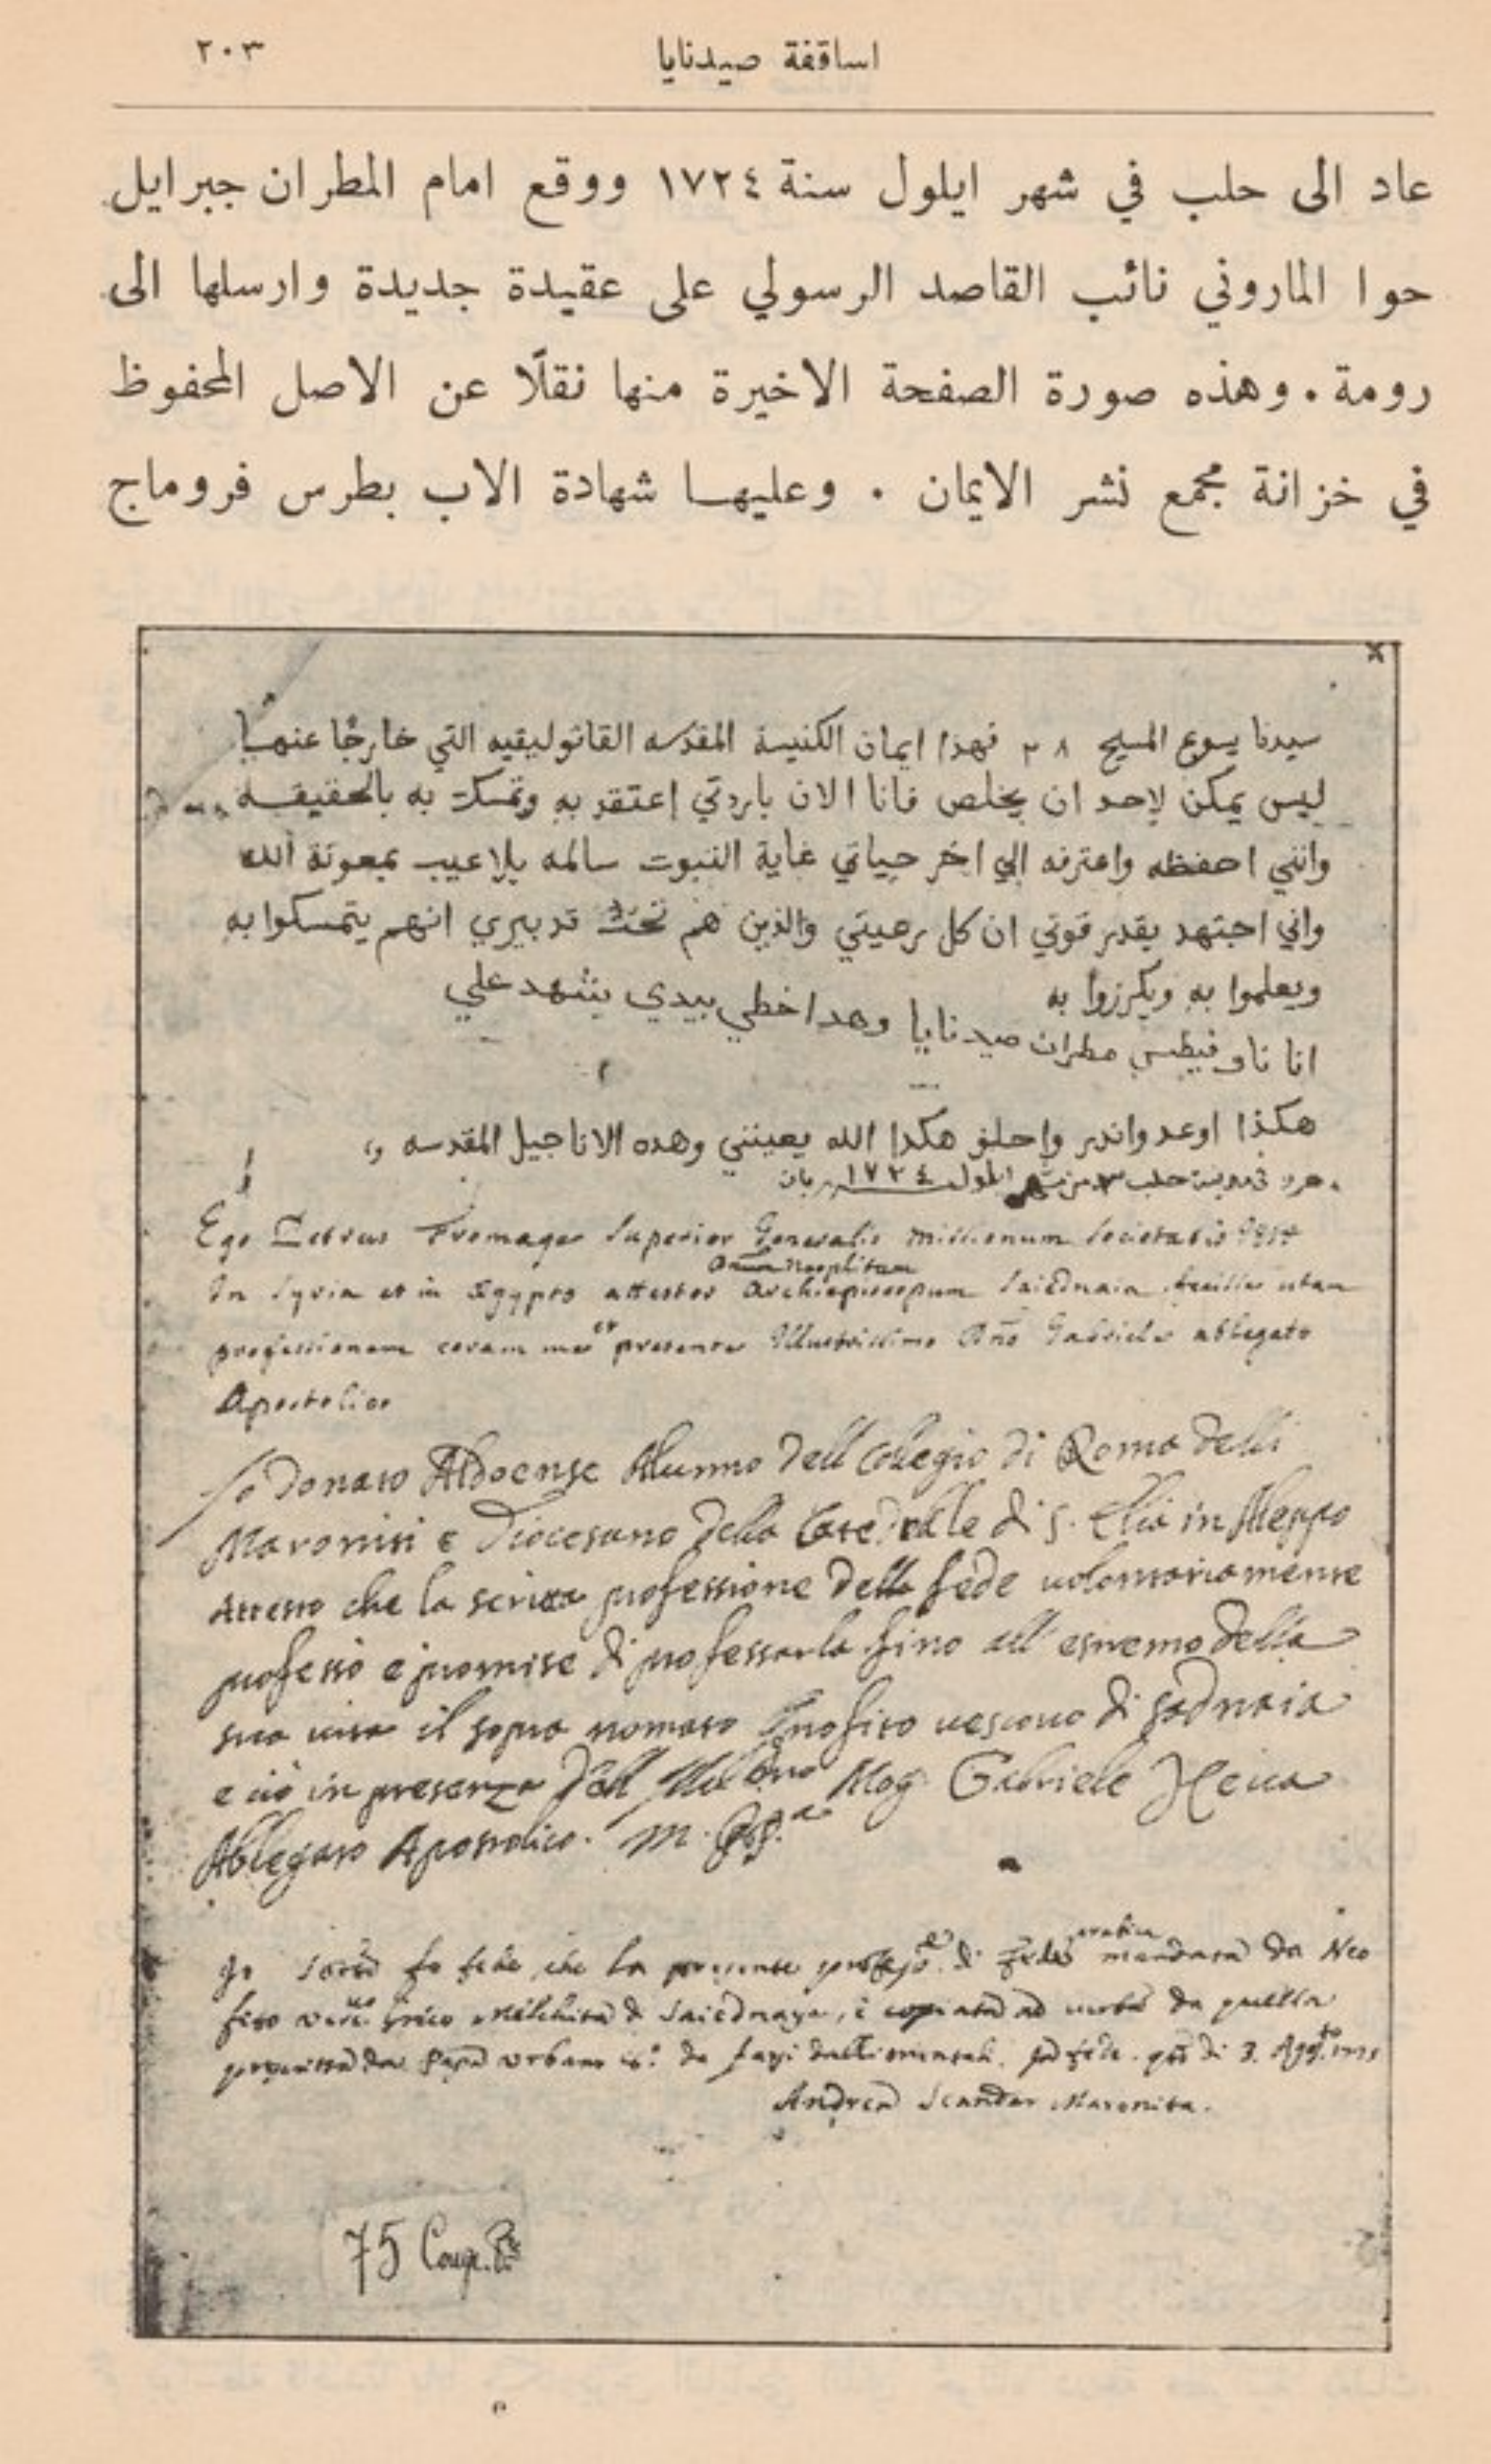 اساقفة صيدنايا ٢٠٣
عاد الى حلب في شهر ايلول سنة ١٧٢٤ ووقع امام المطران جبرايل
حوا الماروني نائب القاصد الرسولي على عقيدة جديدة وارسلها الى
رومة . وهذه صورة الصفحة الاخيرة منها نقلًا عن الاصل المحفوظ
في خزانة مجمع نشر الايمان . وعليها شهادة الاب بطرس فروماج
سيدنا يسوع المسيح ٢٨ فهذا ايمان الكنيسة المقدسه القاثوليقيه التي خارجًا عنها
ليس يمكن لاحد ان يخلص فانا الان باردتي اعتقد به وتمسكت به بالحقيقه
وانني احفظه واعترفه الي اخر حياتي غاية الثبوت سالمه بلا عيب بمعونة الله
واني اجتهد بقدر قوتي ان كل رعيتي والذين هم تحت تدبيري انهم يتمسكوا به
ويعلموا به ويكرزوا به
انا ناوفيطس مطران صيدنايا وهدا خطي بيدي يشهد علي
هكذا اوعد واندر واحلف هكدا الله يعينني وهده الاناجيل المقدسه
مدينة حلب ايلول ١٧٢٤
Ego Petrus Fromage Superior Generalis missionum Societatis
In Syria et in Egypto attestor Archiepiscopum Saidnaia
professionem coram me et presente Illustrissimo Dño Gabriele ablegato
Apostolico
Io Donato Aldoense Alunno dell Collegio di Roma delli
Maroniti e Diocesano della Catedralle di S. Elia in Aleppo
Attesto che la scritta professione della fede volontariamente
professò e promise di professarla fino all' estremo della
sua vita il sopra nomato Neofito vescovo di Sadnaia
e ciò in presenza dell Gabriele Heua
Ablegato Apostolico.
Io fo fede, che la presente di fede arabica mandata da Neo
fito Greco Melchita di Saiednaya, è copiata ad da quella
da Papa Urbano da 3.
Andrea Scandar Maronita.
75 Cong.